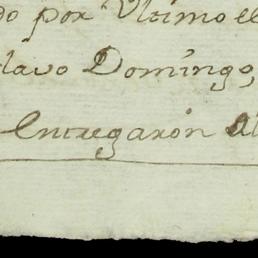 do por Vltimo el
clavo Domingo,
Entregarón al